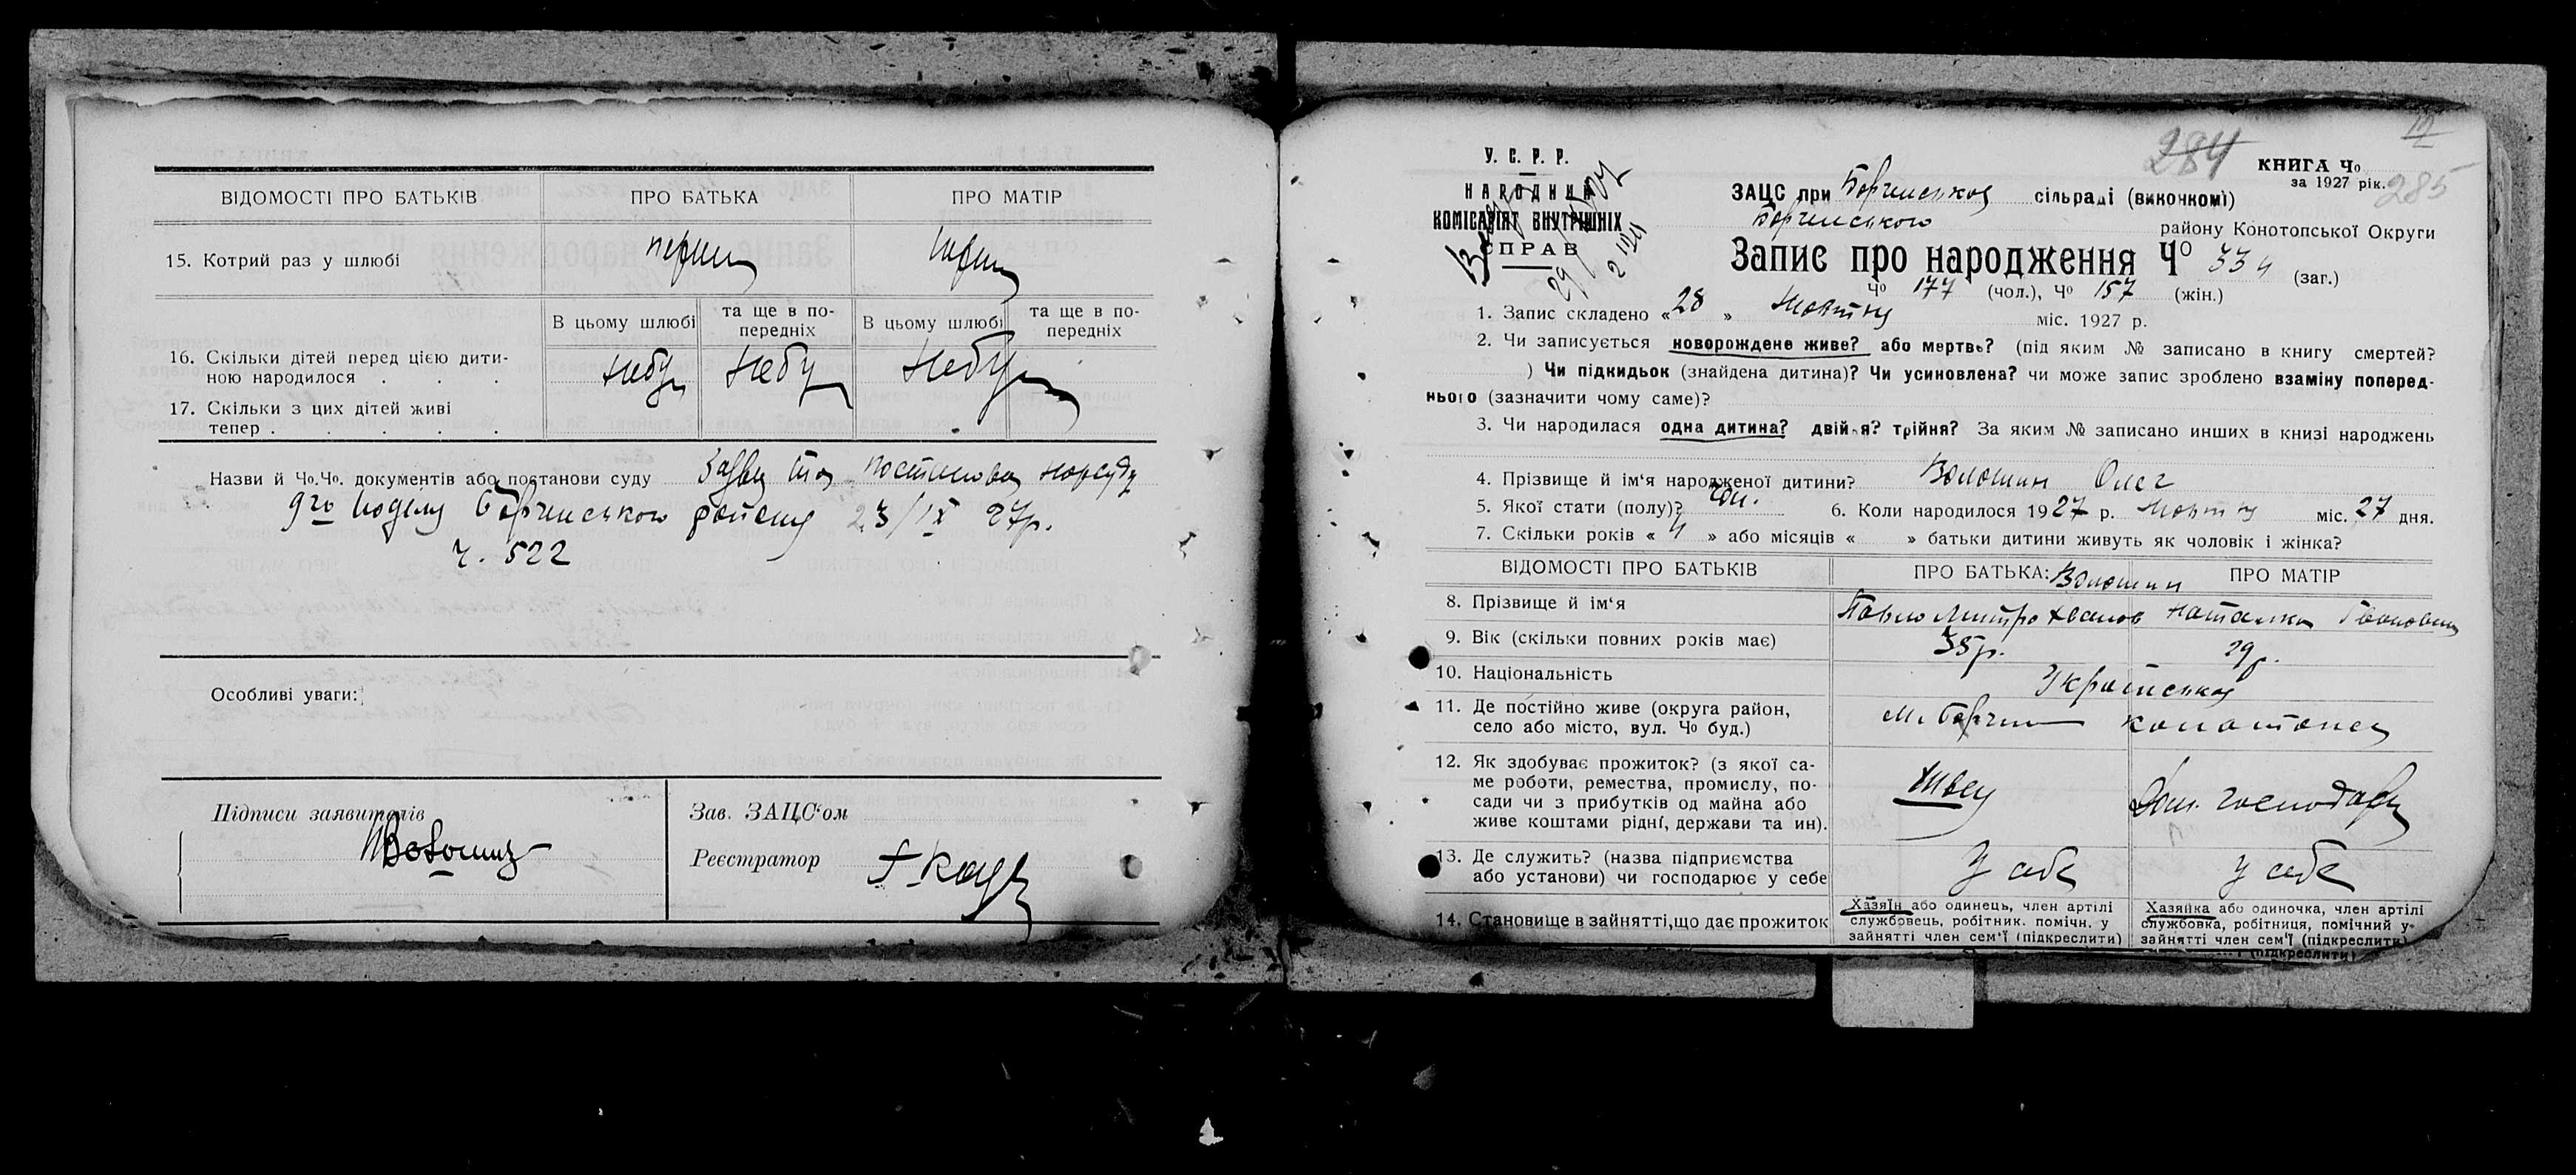 ВІДОМОСТІ ПРО БАТЬКІВ ПРО БАТЬКА ПРО МАТІР
15. Котрий раз у шлюбі перший
В цьому шлюбі та ще в по-передніх В цьому шлюбі та ще в по-передніх
16. Скільки дітей перед цією дити-
ною народилося . . . Небу Небу Небу
17. Скільки з цих дітей живі
тепер . . . . .
Назви й Чо.Чо. документів або постанови суду Заява та постанова нарсуду
9го Борзенського району 23/IX 27р.
ч. 522
Особливі уваги:
Підписи заявителів
Волошин
Зав. ЗАЦС‘ом
Реєстратор
12
284
КНИГА Чо
за 1927 рік. 285
У. С. Р. Р.
НАРОДНИЙ
КОМІСАРІЯТ ВНУТРІШНІХ
СПРАВ
ЗАЦС при Борзенській сільраді (виконкомі)
Борзенського району Конотопської Округи
Запис про народження Чо 334 (заг.)
Чо 177 (чол.), Чо 157 (жін.)
1. Запис складено «28» Жовтня міс. 1927 р.
2. Чи записується новорождене живе? або мертве? (під яким № записано в книгу смертей?
) Чи підкидьок (знайдена дитина)? Чи усиновлена? чи може запис зроблено взаміну поперед-
нього (зазначити чому саме)?
3. Чи народилася одна дитина? двійня? трійня? За яким № записано инших в книзі народжень
4. Прізвище й ім‘я народженої дитини? Волошин Олег
5. Якої стати (полу)? чол. 6. Коли народилося 1927 р. Жовтня міс. 27 дня.
7. Скільки років « 4 » або місяців « » батьки дитини живуть як чоловік і жінка?
ВІДОМОСТІ ПРО БАТЬКІВ ПРО БАТЬКА: Волошин ПРО МАТІР
8. Прізвище й ім‘я Павло Митрофанов Наталка Івановна
9. Вік (скільки повних років має) 35р. 29р.
10. Національність Українська
11. Де постійно живе (округа район,
село або місто, вул. Чо буд.) м. Борзна
12. Як здобуває прожиток? (з якої са-
ме роботи, ремества, промислу, по-
сади чи з прибутків од майна або
живе коштами рідні, держави та ин). Швець Дом. господарка
13. Де служить? (назва підприємства
або установи) чи господарює у себе У себе у себе
14. Становище в зайнятті, що дає прожиток
Хазяїн або одинець, член артілі
службовець, робітник. помічн. у
зайнятті член сем‘ї (підкреслити)
Хазяйка або одиночка, член артілі
службовка, робітниця, помічний у
зайнятті член сем‘ї (підкреслити)